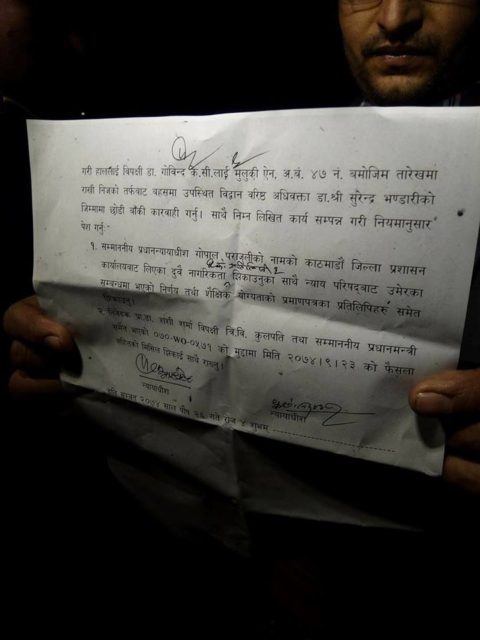 गरी हाललाई विपक्षी डा. गोविन्द के.सी.लाई मुलुकी ऐन, अ.बं. ४७ नं. बमोजिम तारेखमा
राखी निजको तर्फबाट बहसमा उपस्थित विद्वान वरिष्ठ अधिवक्ता डा.श्री सुरेन्द्र भण्डारीको
जिम्मामा छोडी बाँकी कारवाही गर्नु। साथै निम्न लिखित कार्य सम्पन्न गरी नियमानुसार
पेश गर्नुः-
१. सम्माननीय प्रधानन्यायाधीश गोपाल पराजुलीको नामको काठमाडौं जिल्ला प्रशासन
कार्यालयबाट लिएका दुवै नागरिकता झिकाउनुका साथै न्याय परिषद्‌बाट उमेरका
सम्बन्धमा भएको निर्णय तथा शैक्षिक योग्यताको प्रमाणपत्रका प्रतिलिपिहरु समेत
झिकाउनु।
२. निवेदक प्रा.डा. शशी शर्मा विपक्षी त्रि.वि. कुलपति तथा सम्माननीय प्रधानमन्त्री
समेत भएको ०७०-WO-०८७१ को मुद्दामा मिति २०७४।९।२३ को फैसला
सहितको मिसिल झिकाई साथै राख्नु।
न्यायाधीश
न्यायाधीश
इति सम्वत् २०७४ साल पौष २६ गते रोज ४ शुभम्